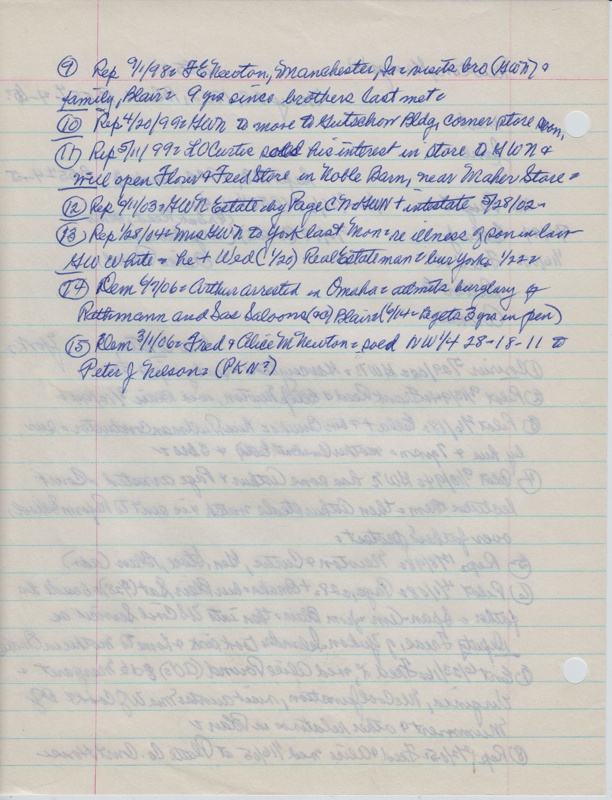 (9) Rep 9/1/98= F E Newton, Manchester, Ia= visits bro (HWN) &
family, Blair= 9 yrs since brothers last met=
(10) Rep 4/20/99= HWN to move to Gutschow Bldg, corner store rm,
(11) Rep 5/11/99= L O Curtis sold his interest in store to HWN &
will open Flour & Feed Store in Noble Barn, near Maher Store=
(12) Rep 9/11/03= HWN Estate by Page C N= HWN + intestate 5/28/02=
(13) Rep 1/28/04= Mrs HWN to York last Mon= re illness of son in law
H W White= he + Wed (1/20) Real Estate man= bur York 1/22=
(14) Dem 6/7/06= Arthur arrested in Omaha= admits burglary of
Rathmann and Sas Saloons Blair= (6/14= gets 3 yrs in pen)
(15) Dem 3/1/06= Fred & Alice M Newton= sold NW 1/4 28-18-11 to
Peter J Nelson= (PKN?)